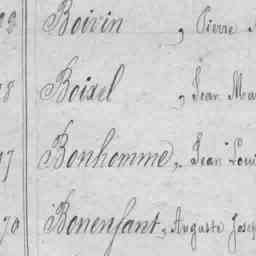 Boivin , Pierre
8 Boixel , Jean Mar
7 Bonhomme, Jean Loui
70 Bonenfant, Auguste Josep